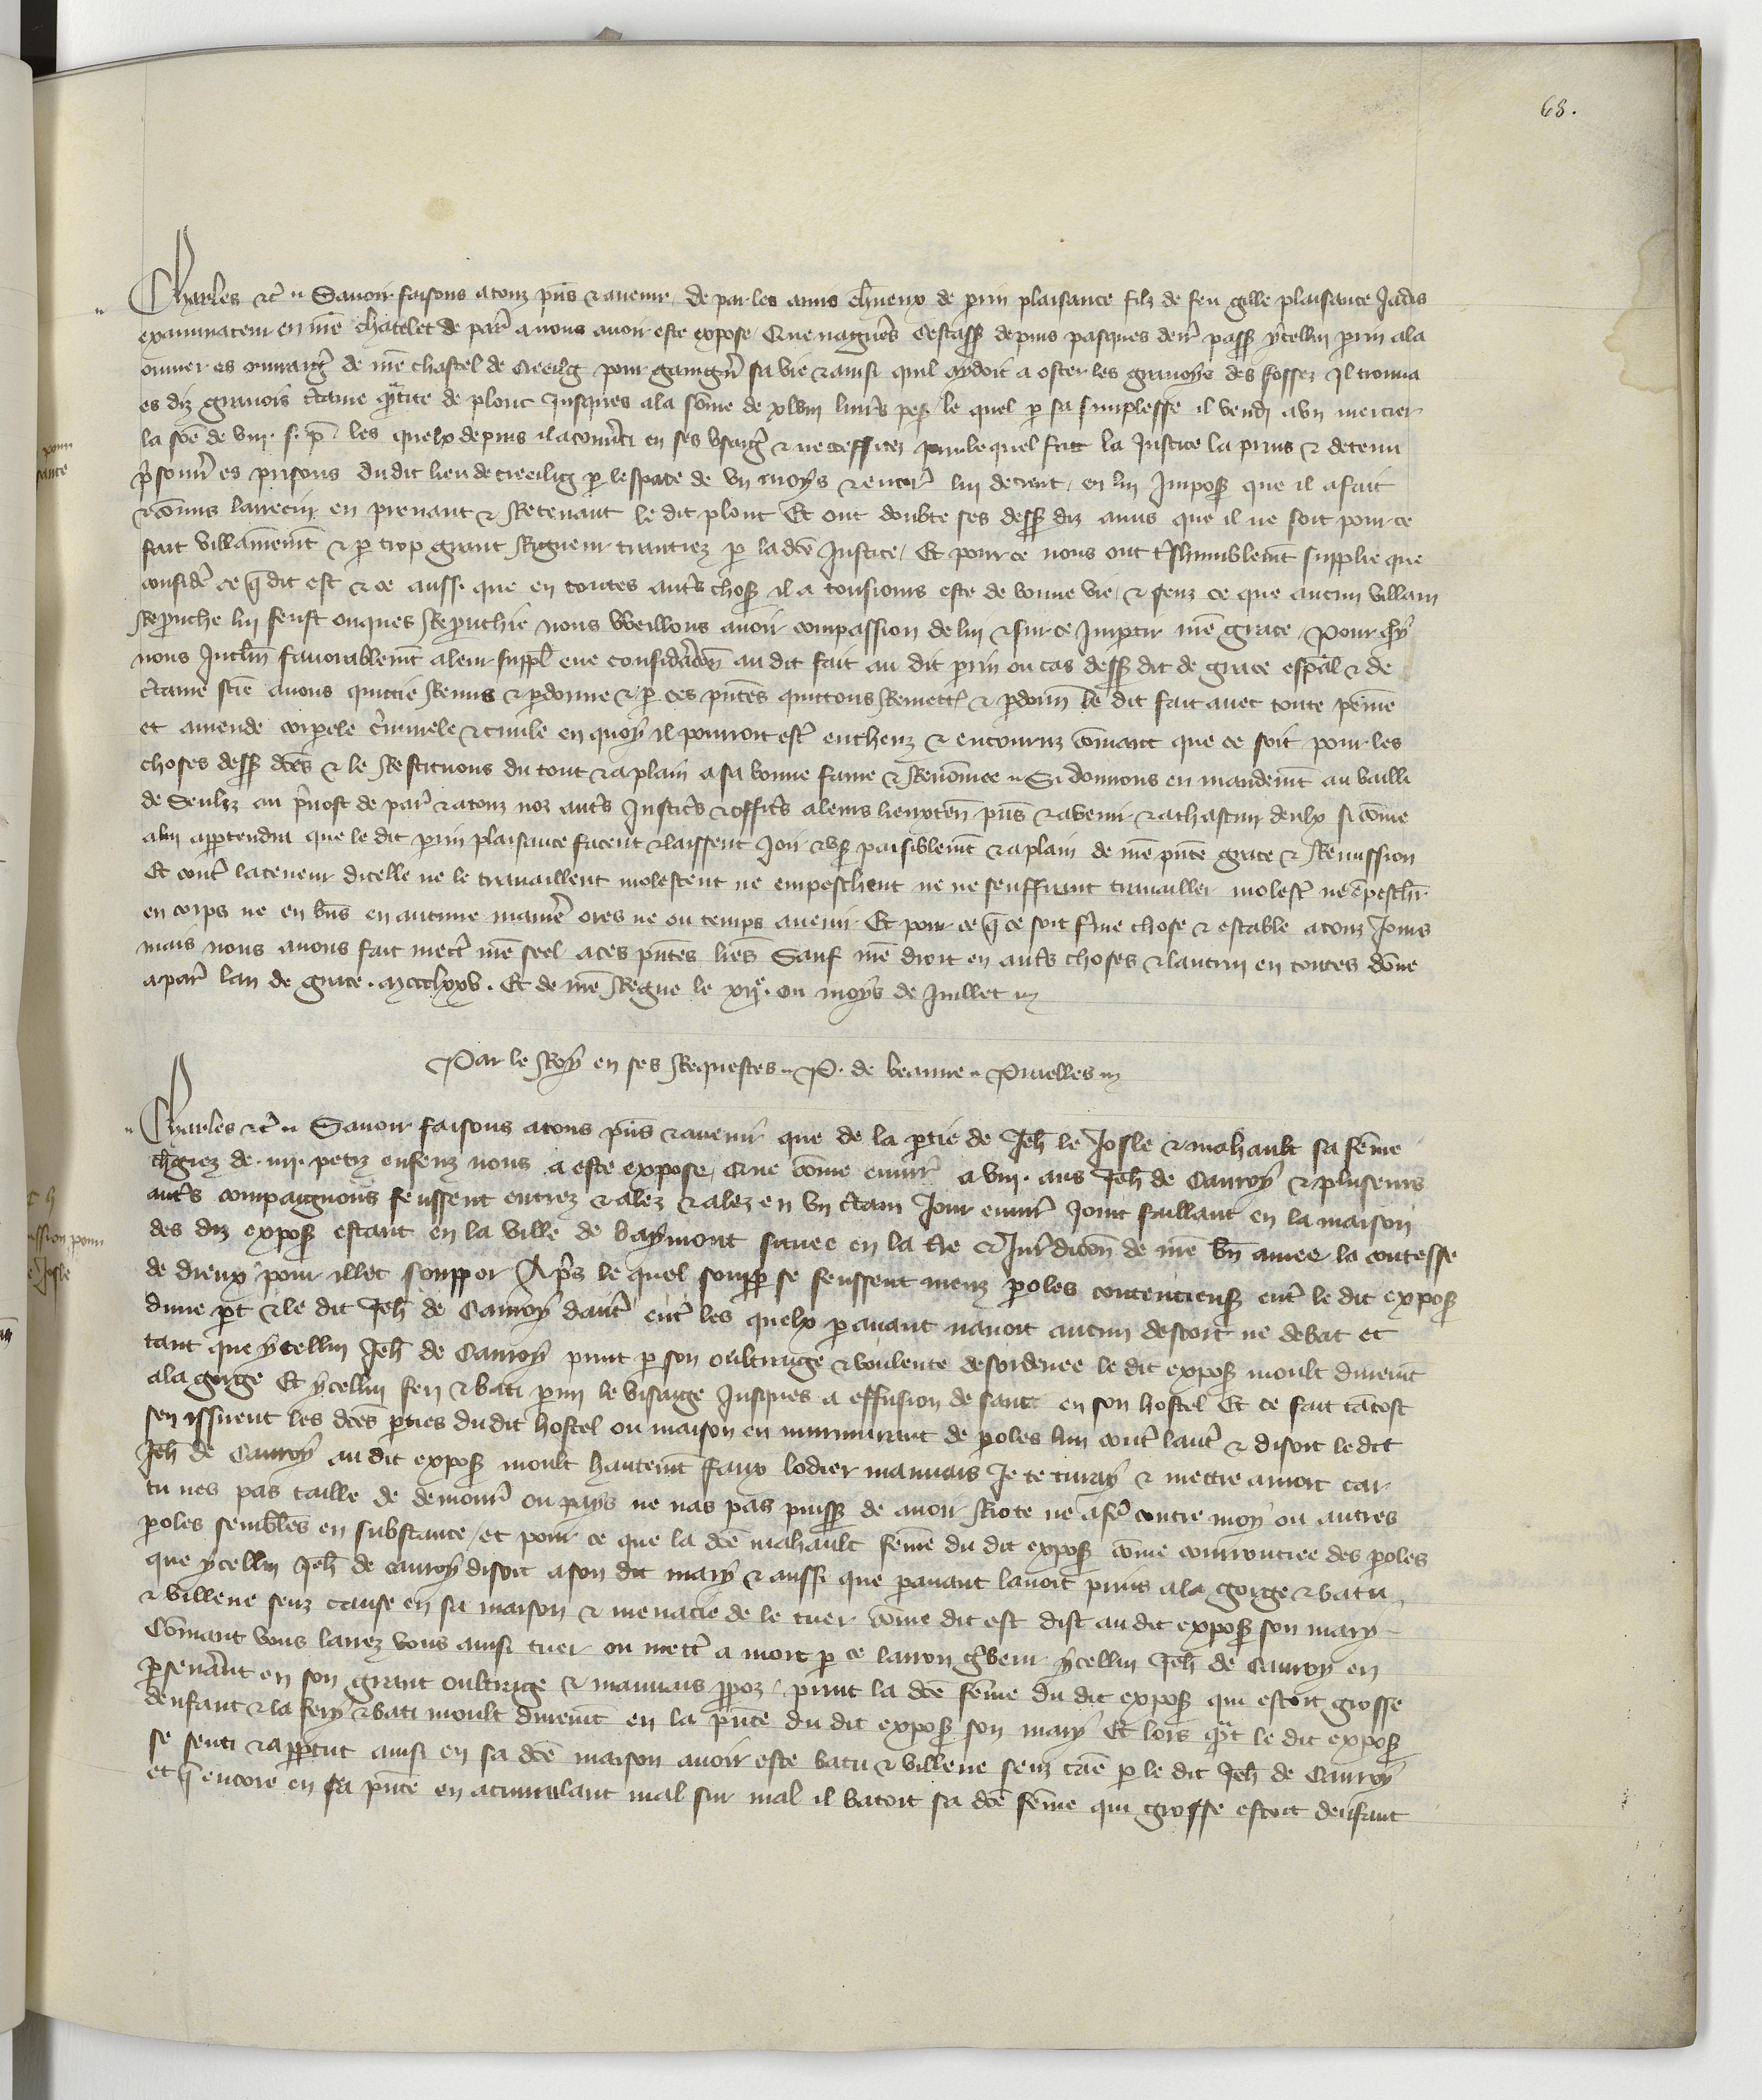 68.
Charles etc. Savoir faisons a touz pñs et avenir, de par les amis charneux de perrin plaisance filz de feu gille plaisance Jadis
examinateur en nr̃e chastelet de par̃ a nous avoir este expose Que nagueres cestass̃ depuis pasques dẽr pass̃ ycellui perrin ala
ouvrer es ouvraig̃ de nr̃e chastel de Creeilg pour gaingñ sa vie et ainsi quil aydoit a oster les gravoys des fossez Il trouva
es diz gravois c̃taine q̃ntite de plont Jusques a la sõme de xlviii livr̃s pes̃ le quel p sa simplesse il vendi a un mercier
la sõe de viii. s. p. les quelx depuis il a cõverti en ses usaig̃ et necessitez pour le quel fait la Justice la prins et detenu
p̃sonñ es prisons du dit lieu de creeilg p lespace de un moys et encor̃ lui detient, en lui Impos̃ que il a fait
et cõmis larrecin en prenant et Retenant le dit plont Et ont doubte ses dess̃ diz amis que il ne soit pour ce
fait villainem̃t et p trop grant Rigueur traictiez p la dc̃e Justice, Et pour ce nous ont tr̃shumblem̃t supplie que
consider̃ ce q̃ dit est et ce aussi que en toutes autr̃s chos̃ il a tousiours este de bonne vie, et senz ce que aucun villain
Reprouche lui feust onques Reprouchie nous vueillons avoir compassion de lui et sur ce Impartir nr̃e grace, Pour quoy
nous Inclin̄ favorablem̃t a leur suppl̃ eue consideraciõn au dit fait au dit perrin ou cas dess̃ dit de grace esp̃al et de
c̃taine sciẽ avons quictie Remis et pardonne et p ces p̃ntes quictons Remett̃ et pardonñ le dit fait avec toute peinne
et amende corporele c̃iminele et civile en quoy il pourroit estr̃ encheuz et encouruz cõmant que ce soit pour les
choses dess̃ dc̃es et le Restituons du tout et a plain a sa bonne fame et Renõmee Si donnons en mandem̃t au bailli
de Senliz au p̃vost de par̃ et a touz noz autr̃s Justic̃s et offic̃s a leurs lieuxteñ pñs et avenir et a chascun deulx si cõme
a lui appartendra que le dit perrin plaisance facent et laissent Joir et us̃ paisiblem̃t et a plain de nr̃e p̃nte grace et Remission
Et contr̃ la teneur dicelle ne le travaillent molestent ne empeschent ne ne seuffrent travailler molest̃ ne ẽpeschr̃
en corps ne en biẽs en aucune manier̃ ores ne ou temps avenir Et pour ce q̃ ce soit ferme chose et estable a touz Jours
mais nous avons fait mectr̃ nr̃e seel a ces p̃ntes lr̃es Sauf nr̃e droit en autr̃s choses et lautrui en toutes dõne
a par̃ lan de grace. mccclxxv. Et de nr̃e Regne le xije. ou moys de Juillet
Par le Roy en ses Requestes P. de beaune Pruelles
Charles etc. Savoir faisons a tous pñs et avenir que de la partie de Jeh̃ le Josle et mahault sa fẽme
chargiez de .iiij. petiz enfenz nous a este expose, Que cõme environ̄ a viii. ans Jeh̃ de Cauroy et pluseurs
autr̃s compaignons feussent entrez et alez et alez en un c̃tain Jour environ̄ Jour faillant en la maison
des diz expos̃ estant en la ville de baymont située en la tr̃e et Jur̃diciõn de nr̃e bñ amee la contesse
de dreux pour illec soupper Ap̃s le quel soupper se feussent meuz paroles contencieus̃ entr̃ le dit expos̃
dune pt et le dit Jeh̃ de Cauroy dautr̃ entr̃ les quelx p avant navoit aucun descort ne debat et
tant que ycellui Jeh̃ de Cauroy print p son oultrage et voulente desordenee le dit expos̃ moult durem̃t
a la gorge Et ycellui feri et bati parmi le visaige Jusques a effusion de sanc en son hostel Et ce fait tãtost
sen yssirent les dc̃es parties du dit hostel ou maison en murmurant de paroles lun contr̃ lautr̃ et disoit le dit
Jeh̃ de Cauroy au dit expos̃ moult hautem̃t faux lodier mauvais Je te turay et mectre a mort car
tu nes pas taille de demour̃ ou pays ne nas pas puiss̃ de avoir Riote ne afer̃ contre moy ou autres
paroles semblẽs en substance, et pour ce que la dc̃e mahault fẽme du dit expos̃ cõme courrouciee des paroles
que ycellui Jeh̃ de cauroy disoit a son dit mary et aussi que p avant lavoit prins a la gorge et batu,
et villene senz cause en sa maison et menacie de le tuer cõme dit est dist au dit expos̃ son mary
Cõmant vous lairez vous ainsi tuer ou mettr̃ a mort p ce larron ycellui Jeh̃ de Cauroy en
perseverant en son grant oultrage et mauvais propoz, print la dc̃e fẽme du dit expos̃ qui estoit grosse
denfant et la fery et bati moult durem̃t en la p̃nce du dit expos̃ son mary Et lors q̃nt le dit expos̃
se senti et apparçut ainsi en sa dc̃e maison avoir este batu et villene senz cãe p le dit Jeh̃ de Cauroy
et q̃ encore en sa p̃nce en acumulant mal sur mal il batoit sa dc̃e fẽme qui grosse estoit denfant